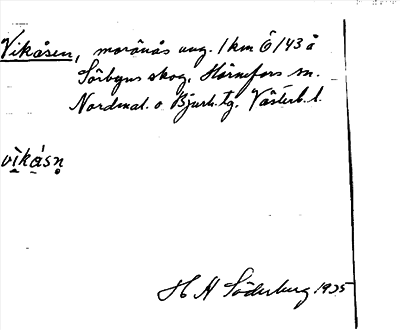 Vikåsen, moränås ung. 1 km Ö 143 å
Sörbyns skog, Hörnefors sn.
Nordmal. o Bjurh. tg. Västerb. l.
vìkásn̥
H H Söderberg 1935